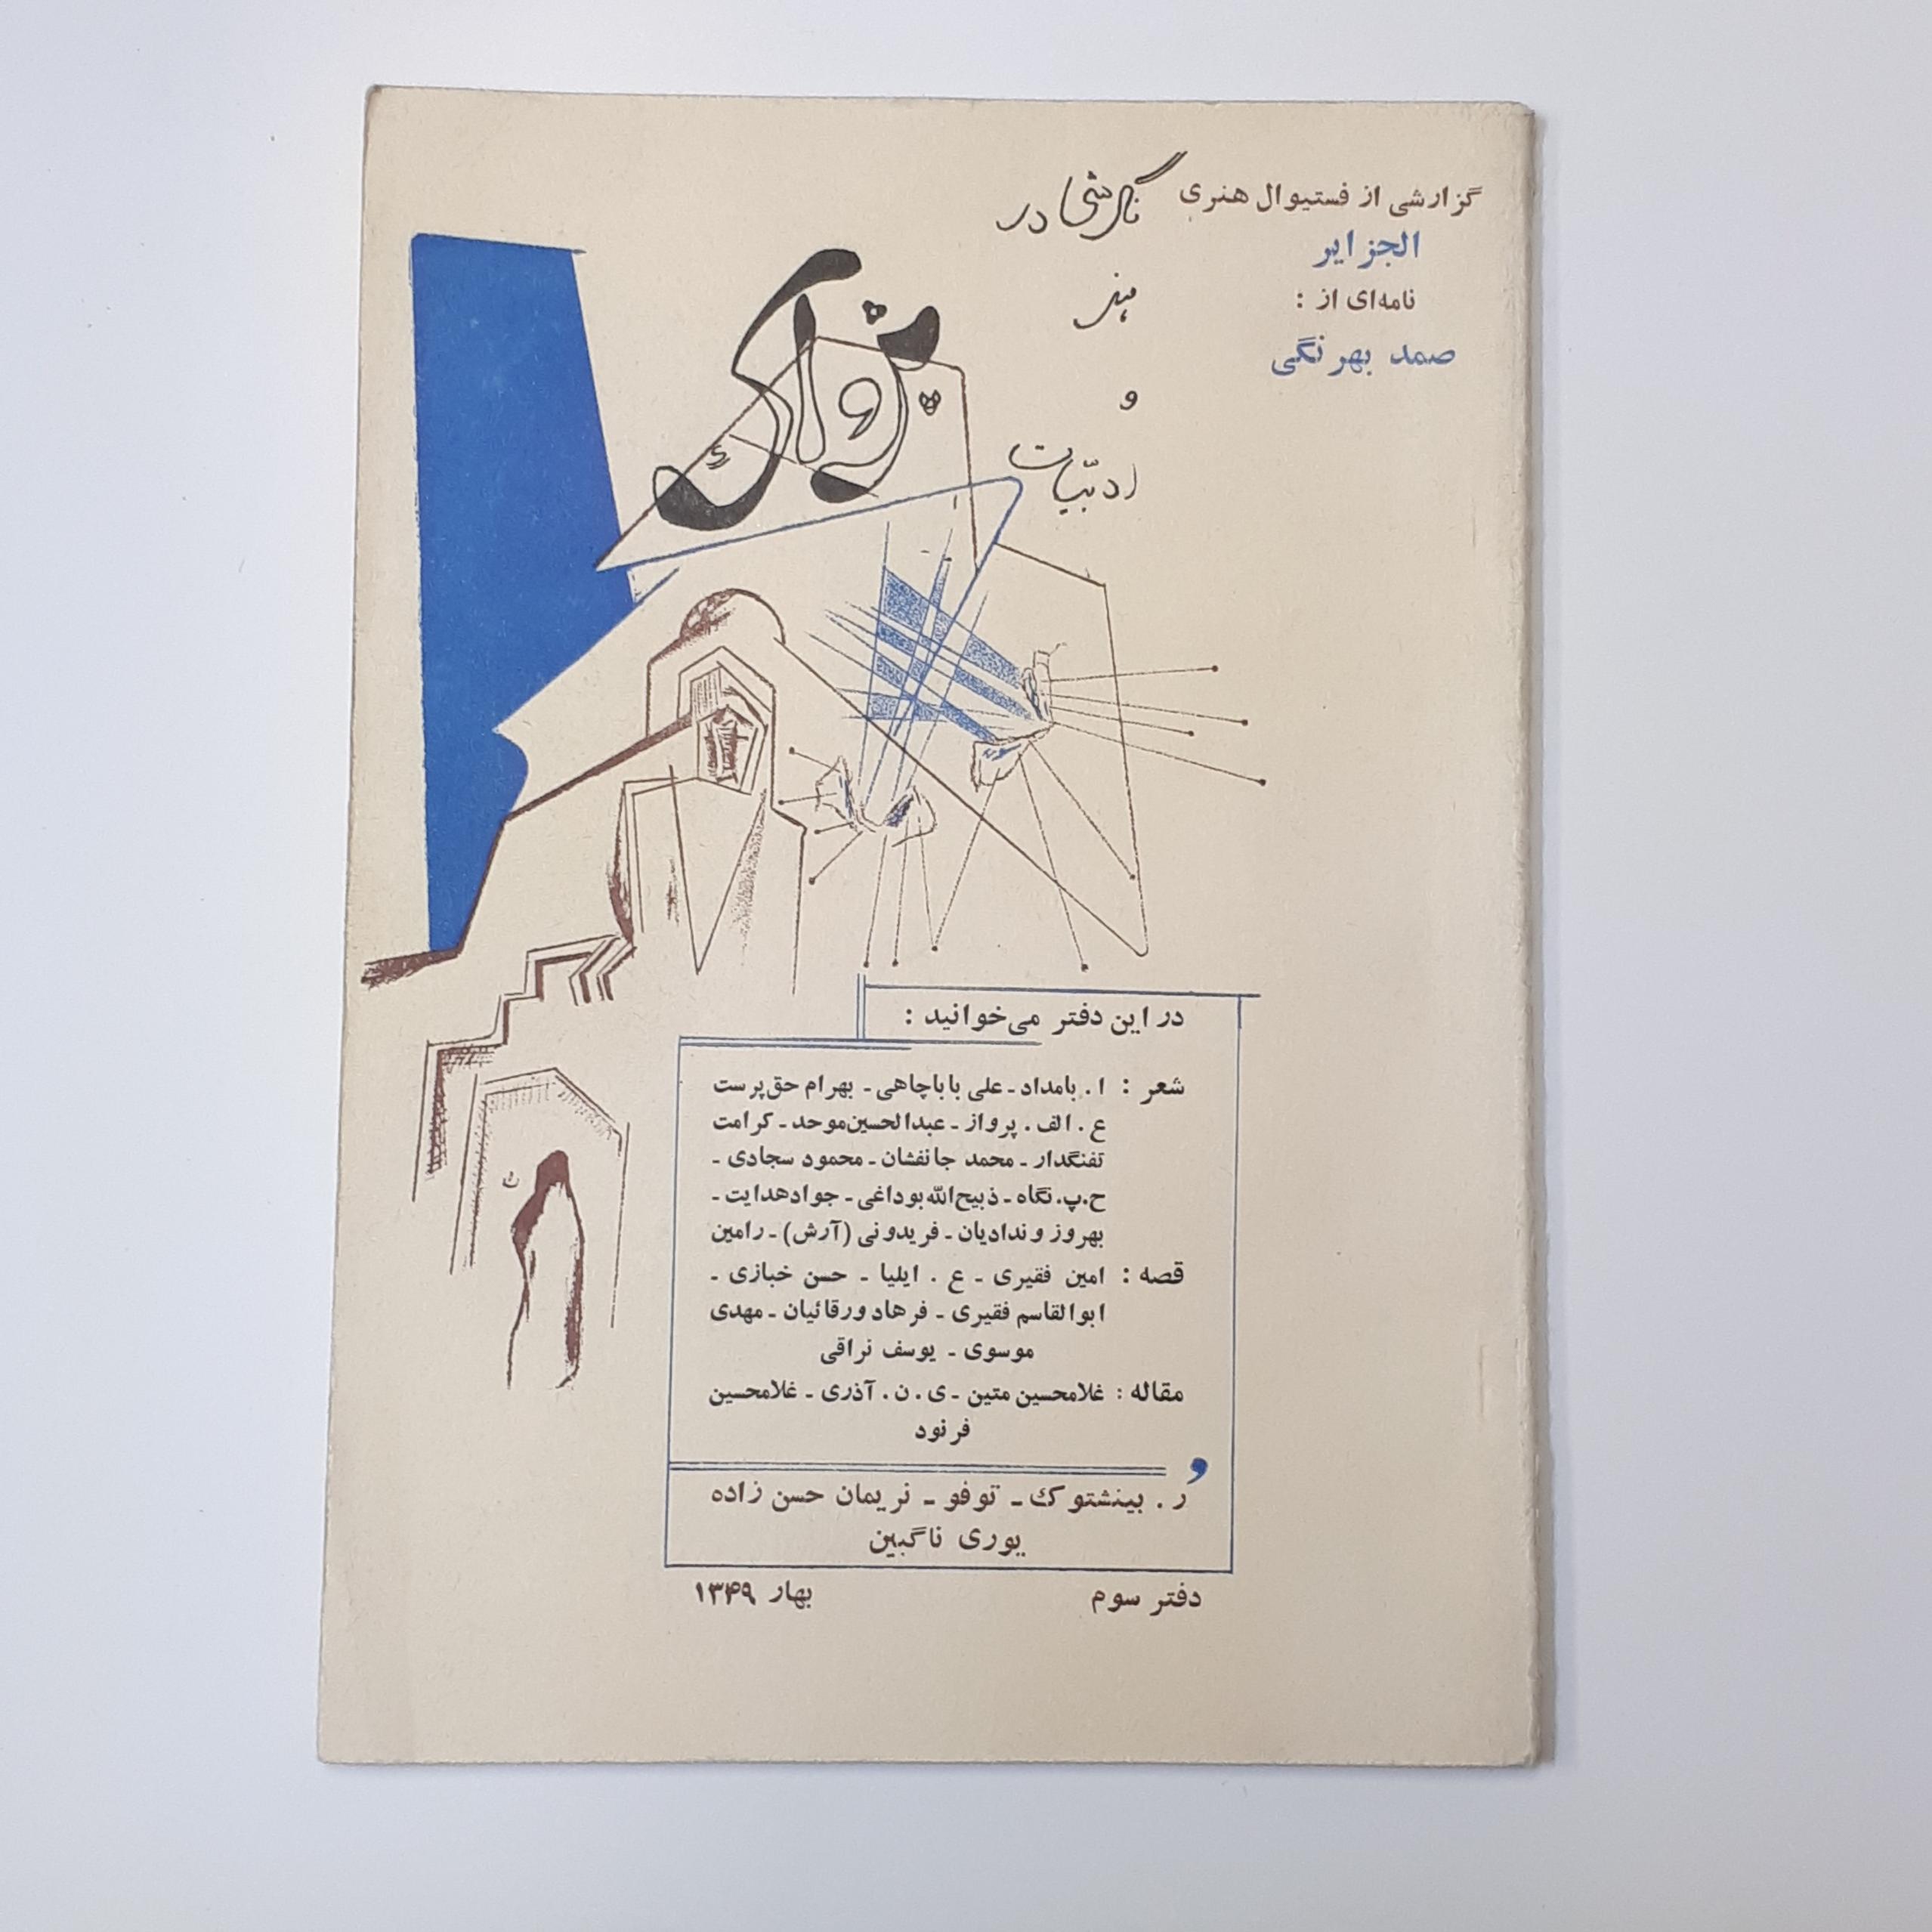 گزارشی از فستیوال هنری
الجزایر
نامه‌ای از :
صمد بهرنگی
نگرشی در
هنر
و
ادبیات
پژواک
در این دفتر می‌خوانید :
شعر : ا . بامداد ـ علی باباچاهی ـ بهرام حق‌پرست
ع . الف . پرواز ـ عبدالحسین موحد ـ کرامت
تفنگدار ـ محمد جانفشان ـ محمود سجادی ـ
ح.پ. نگاه ـ ذبیح‌الله بوداغی ـ جواد هدایت ـ
بهروز وندادیان ـ فریدونی (آرش) ـ رامین
قصه : امین فقیری ـ ع . ایلیا ـ حسن خبازی ـ
ابوالقاسم فقیری ـ فرهاد ورقائیان ـ مهدی
موسوی ـ یوسف نراقی
مقاله : غلامحسین متین ـ ی . ن . آذری ـ غلامحسین
فرنود
و
ر . بینشتوک ـ توفو ـ نریمان حسن زاده
یوری ناگبین
دفتر سوم بهار ۱۳۴۹